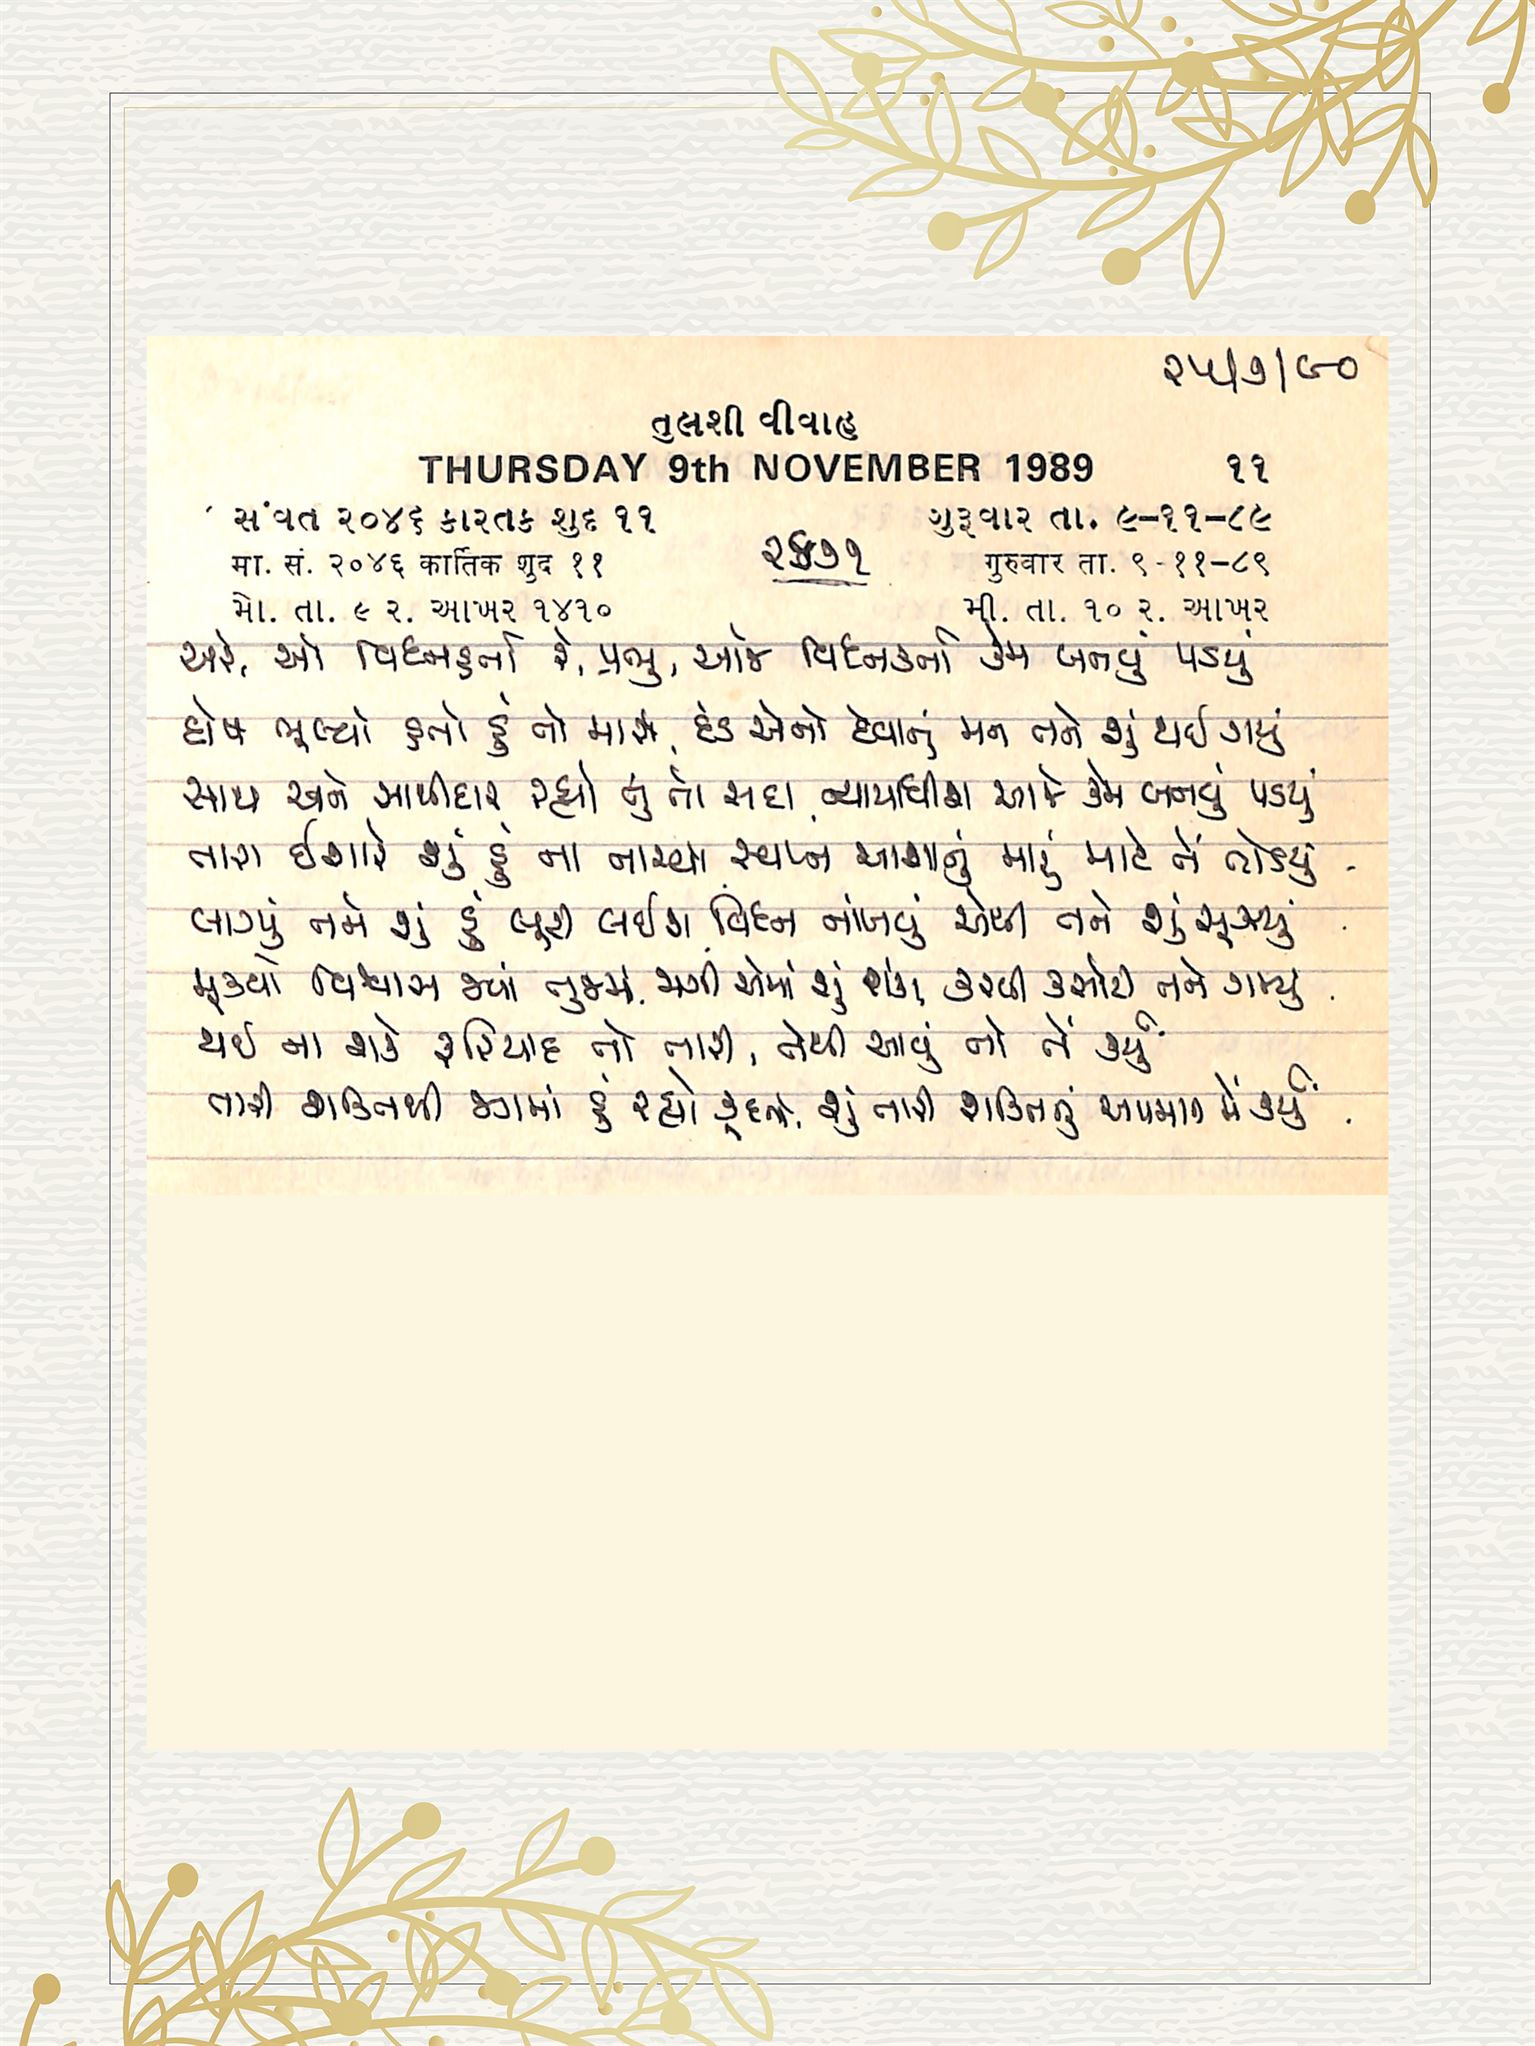 ૨૫/૭/૯૦
તુલશી વીવાહ
THURSDAY 9th NOVEMBER 1989 ૧૧
સંવત ૨૦૪૬ કારતક શુદ ૧૧ ગુરૂવાર તા. ૯-૧૧-૮૯
मा. सं. २०४६ कार्तिक शुद ११ गुरुवार ता. ९-११-८९
મો. તા. ૯ ર. આખર ૧૪૧૦ મી. તા. ૧૦ ર. આખર
અરે, ઓ વિઘ્નહર્તા રે, પ્રભુ, આજે વિઘ્નકર્તા કેમ બનવું પડયું
દોષ ભૂલ્યો હતો હું તો મારા, દંડ એનો દેવાનું મન તને શું થઈ ગયું
સાથ અને સાથીદાર રહ્યો તું તો સદા, ન્યાયાધીશ આજે કેમ બનવું પડયું
તારા ઈશારે શું હું ના નાચ્યો, સ્વપ્ન આશાનું મારું માટે તેં તોડયું
લાગ્યું તને શું હું લૂંટી લઈશ, વિઘ્ન નાંખવું એથી તને શું સૂઝ્યું
મૂક્યો વિશ્વાસ જ્યાં તુજમાં, જાગી એમાં શું શંકા, કરવી કસોટી તને ગમ્યું
થઈ ના શકે ફરિયાદ તો તારી, તેથી આવું તો તેં કર્યું
તારી શક્તિથી જગમાં હું રહ્યો કૂદતો, શું તારી શક્તિનું અપમાન મેં કર્યું